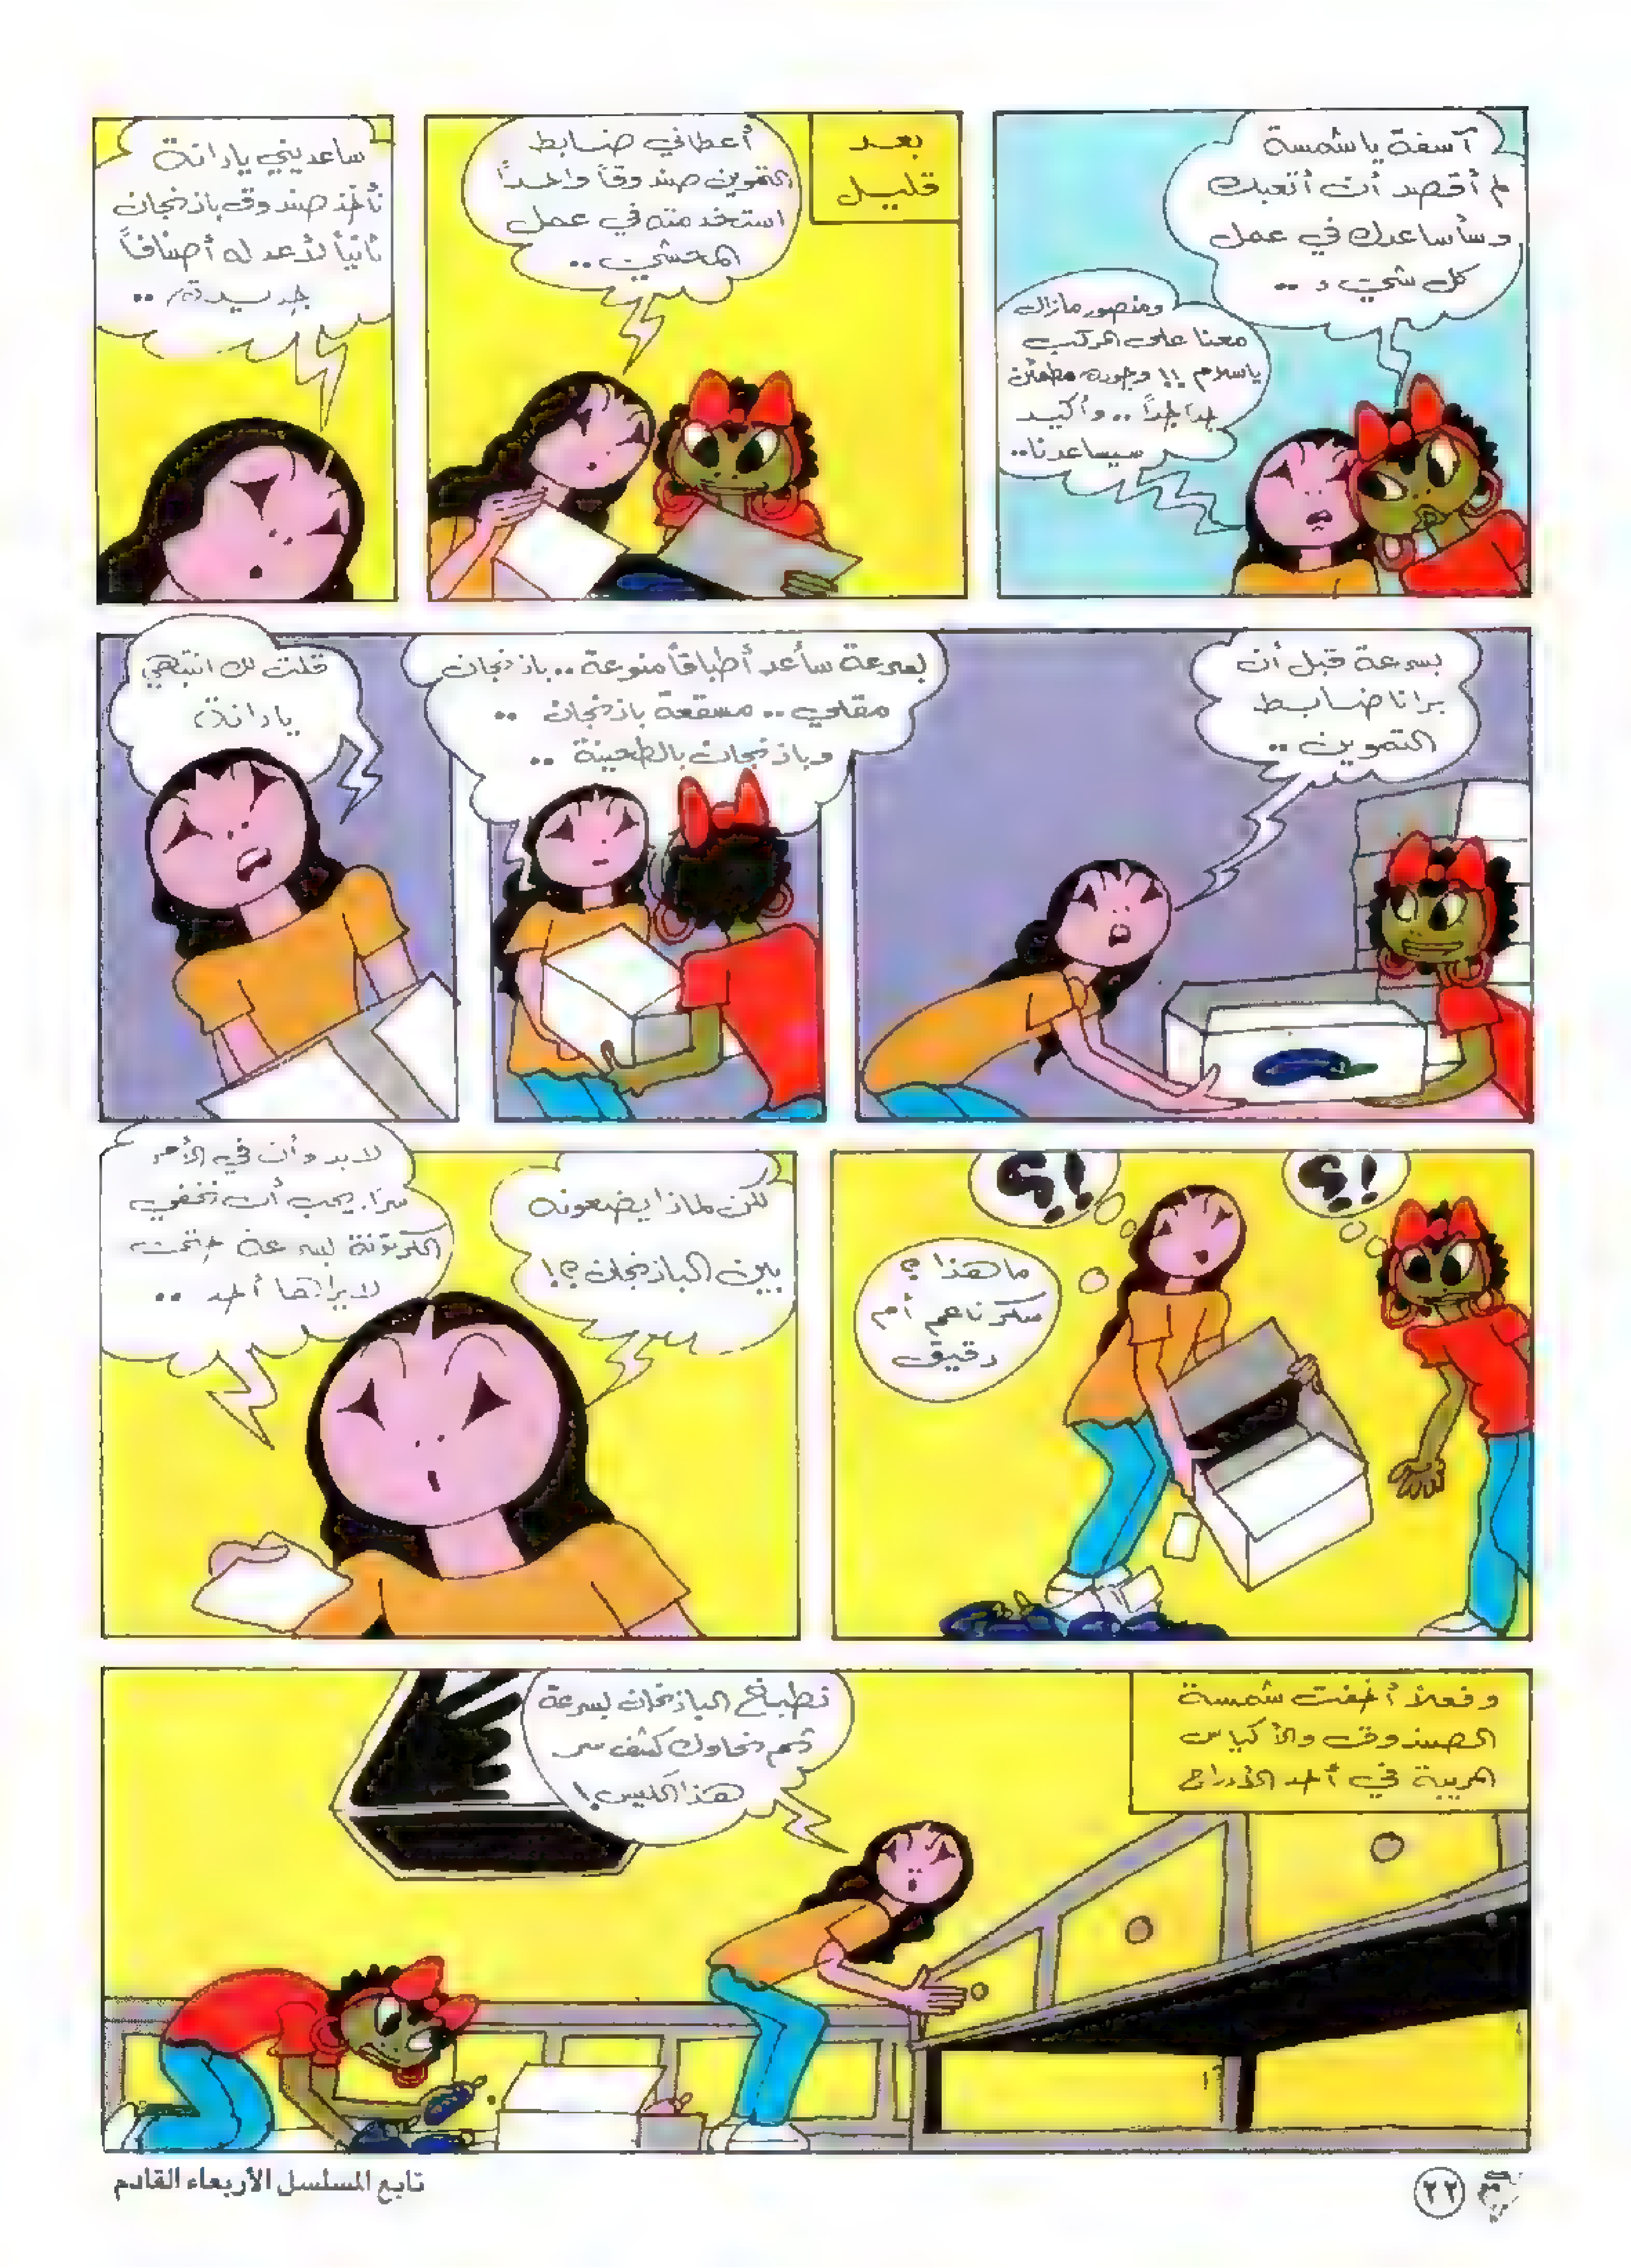 آسفة يا شمسة
لم أقصد أن أتعبك
وسأساعدك في عمل
كل شيء و ..
ومنصور مازال
معنا على المركب
ياسلام !! وجوده مطمئن
جداً جداً .. وأكيد
سيساعدنا ..
بعد
قليل
أعطاني ضابط
التموين صندوقاً واحداً
استخدمته في عمل
المحشي ..
ساعديني يا دانة
نأخذ صندوق باذنجان
ثانياً لأعد له أصنافاً
جديدة ..
بسرعة قبل أن
يرانا ضابط
التموين ..
بسرعة سأعد أطباقاً منوعة .. باذنجان
مقلي .. مسقعة باذنجان ..
وباذنجان بالطحينة ..
قلت لك انتبهي
يا دانة
؟!
؟!
ما هذا ؟
سكر ناعم أم
دقيق
لكن لماذا يضعونه
بين الباذنجان ؟!
لابد وأن في الأمر
سراً. يجب أن نخفي
الكرتونة بسرعة حتى
لا يراها أحد ..
وفعلاً أخفت شمسة
الصندوق والأكياس
المريبة في أحد الأدراج
نطبخ الباذنجان بسرعة
ثم نحاول كشف سر
هذا الكيس !
٢٢
تابع المسلسل الأربعاء القادم